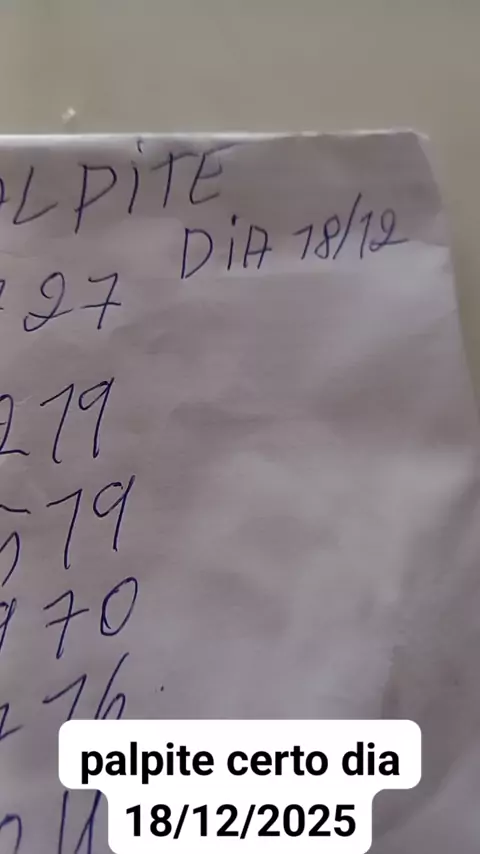 PALPITE
DIA 18/12
27
219
519
970
16
palpite certo dia
18/12/2025